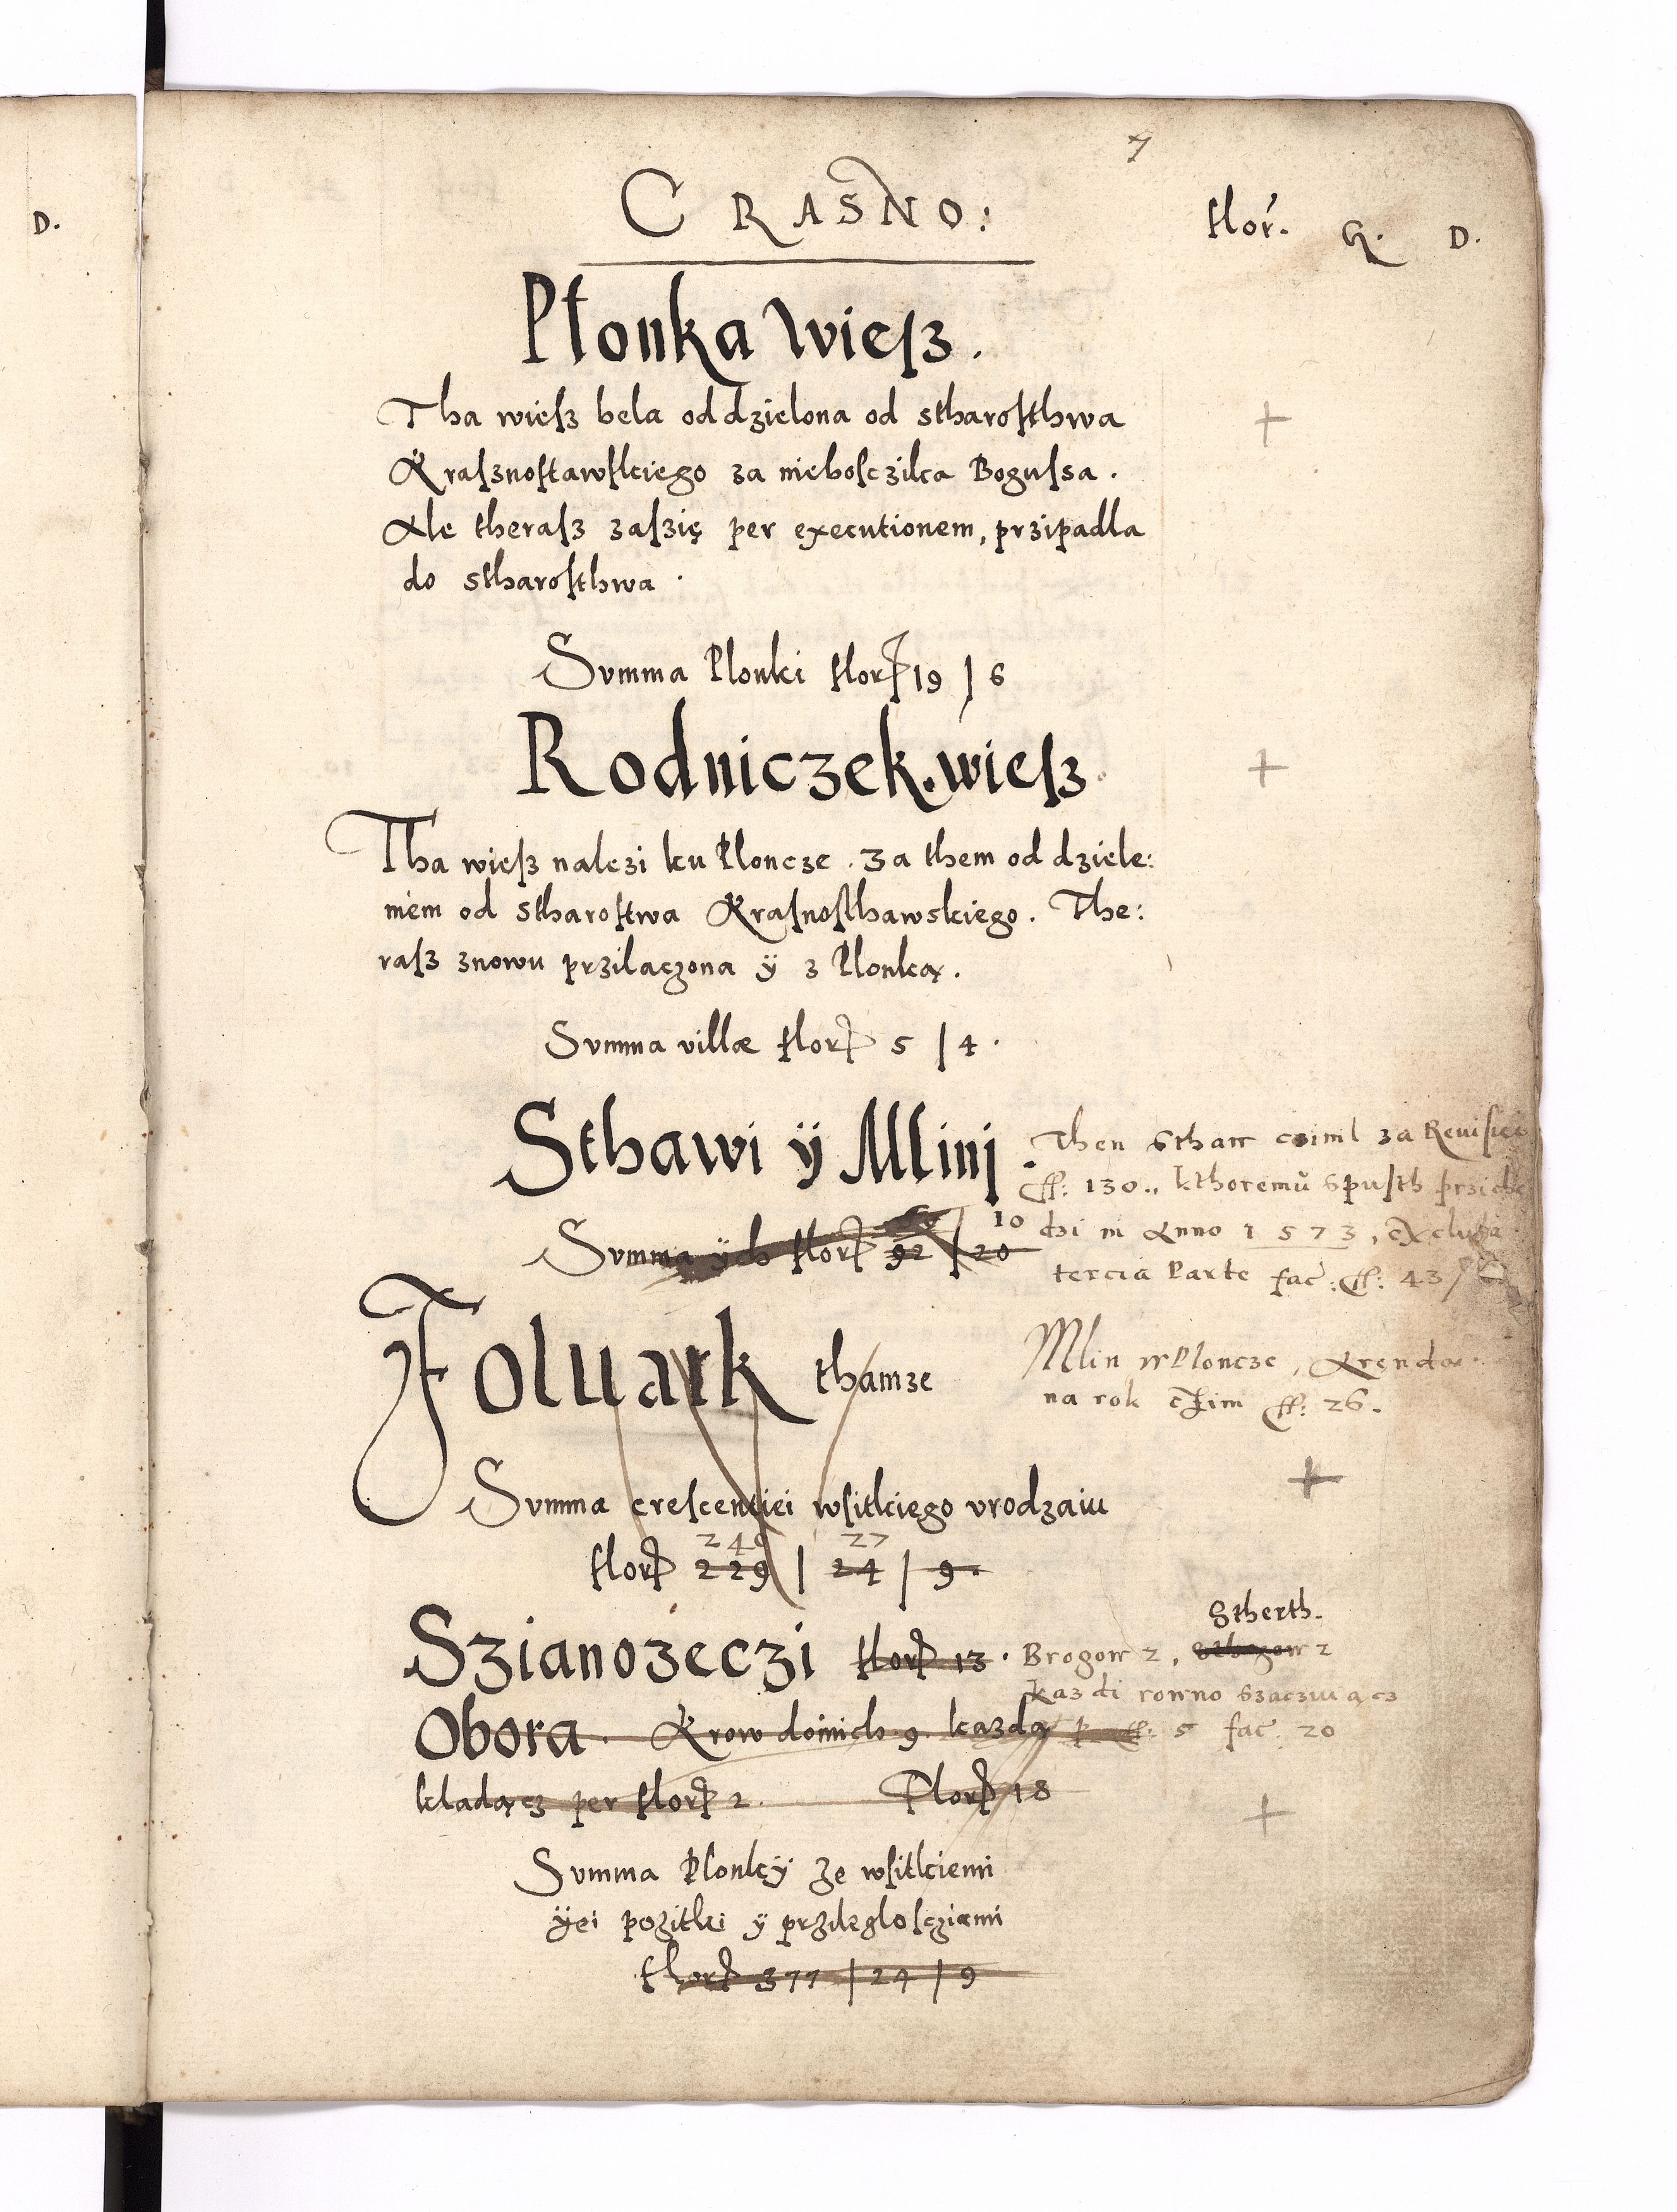 D.
7
CRASNO:
flor. G. D.
Płonka wieſz.
Tha wieſz bela oddzielona od stharoſthwa
Kraſznoſtawſkiego za nieboſczika Boguſsa.
Ale theraſz zaſzię per executionem, przipadla
do stharoſthwa.
Summa Plonki flor 19 | 6
Rodniczek. wieſz.
Tha wieſz nalezi ku Ploncze. Za them oddziele:
niem od stharoſtwa Kraſnoſthawskiego. The:
raſz znowu przilaczona ÿ z Plonką.
Summa villæ flor 5 | 4.
Sthawi ÿ Mlinj.
Then Sthaw czinil za Reuiſiei
ff: 130., kthoremu Spuſth przicho
dzi in Anno 1573, excluſa
tercia Parte fac: ff: 43/
10
Summa ÿch flor 92 | 20
Mlin w Ploncze, Arenda
na rok czim ff: 26.
Foluark thamze
Summa creſcentiei wſitkiego vrodzaiu
249 27
flor 229 | 24 | 9.
Stherth.
Szianozeczi flor 13. Brogow 2, 2
kazdi rowno Szaczuiącz
Obora. Krow doinich 9. kazdą p ff: 5 fac. 20
kladącz per flor 2. Flor 18
Summa Plonkÿ ze wſitkiemi
ÿei pozitki ÿ przileglosciami
flor 377 | 24 | 9